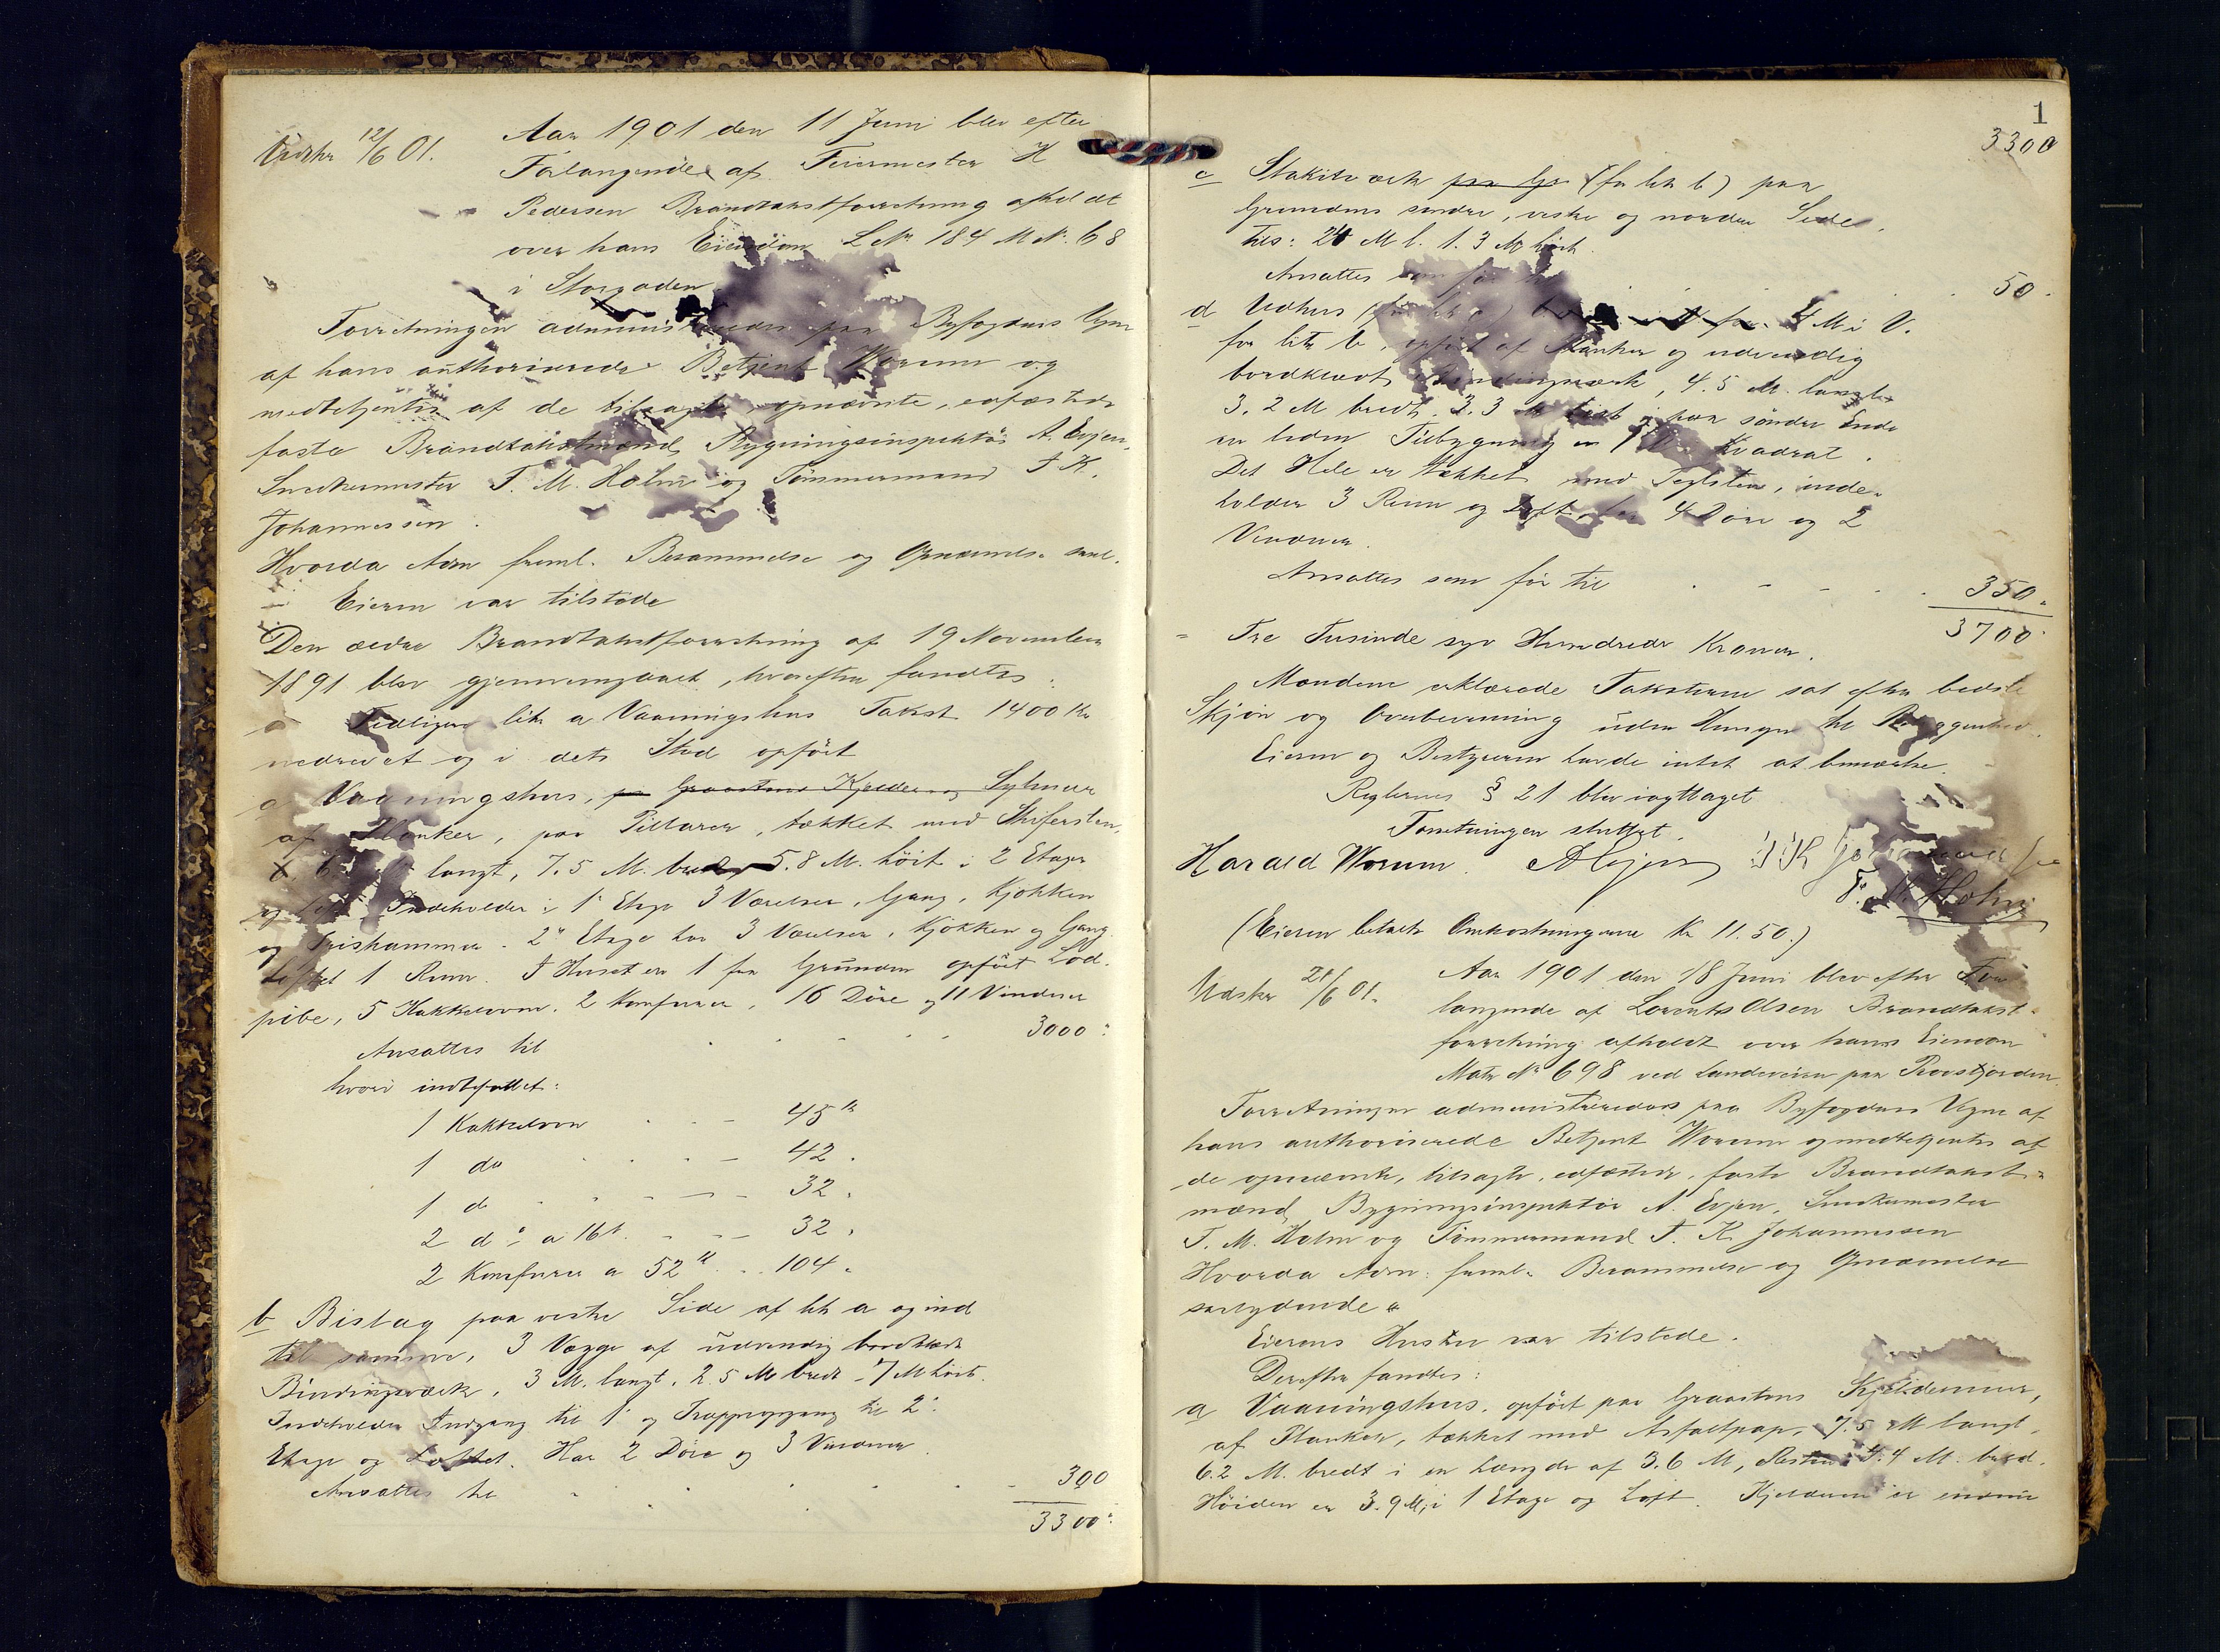 Udskr 12/6 01.
Aar 1901 den 11 Juni blev efter
Forlangende af Feiermester H
Pedersen Brandtakstforretning afholdt
over hans Eiendom L No 184 M No. 68
i Storgaden
Forretningen administreredes paa Byfogdens Vegne
af hans authoriserede Betjent Worum og
medbetjentes af de tilsagte, opnævnte, edfæstede
faste Brandtakstmænd, Bygningsinspektör A. Evjen,
Snedkermester T. M. Holm og Tömmermand J. K.
Johannessen.
Hvorda Adm freml. Berammelse og Opnævnelse saal.
Eieren var tilstede
Den ældre Brandtakstforretning af 19 November
1891 blev gjennemgaaet, hvorefter fandtes:
Tidligere litr a Vaaningshus Takst 1400 Kr
nedrevet og i dets Sted opfört
a Vaaningshus, paa Graastens Kjelder og Sylmur
af Planker, paa Pillarer, tækket med Skifersten,
langt, 7.5 M. bredt, 5.8 M. höit i 2 Etager
og Indeholder i 1 Etage 3 Værelser, Gang, Kjökken
og Spiskammer. 2n Etage har 3 Værelser, Kjökken og Gang.
Loftet 1 Rum. I Huset er 1 fra Grunden opfört Lod-
pibe, 5 Kakkelovne, 2 Komfurer, 16 Döre og 11 Vinduer
Ansattes til 3000.
hvori indbefattet:
1 Kakkelovn 45 K
1 do 42.
1 d 32.
2 do a 16 K. 32.
2 Komfurer a 52 K 104.
b Bislag paa vestre Side af litr a og ind
til samme, 3 Vægge af udvendig bordklædt
Bindingsværk, 3 M. langt, 2.5 M bredt - 7 M höit.
Indeholder Indgang til 1 og Trappeopgang til 2.
Etage og Loftet. Har 2 Döre og 3 Vinduer.
Ansattes til 300
3300.
1
3300
c Stakitværk paa Gr (för litr b) paa
Grundens söndre, vestre og nordre Side,
tils: 24 M l. 1.3 M höit.
Ansattes som för til 50.
d Vedhus 4 M i V.
for litr b, opfört af Planker og udvendig
bordklædt Bindingsværk, 4.5 M. langt
3.2 M bredt. 3.3 M höit i paa söndre Ende
er liden Tilbygning Kvadrat.
Det Hele er tækket med Teglsten, inde-
holder 3 Rum og Loft, 4 Döre og 2
Vinduer.
Ansattes som för til 350.
3700.
= Tre Tusinde syv Hundrede Kroner.
Mændene erklærede Taksterne sat efter bedste
Skjön og Overbevisning uden Hensyn til Beliggenhed.
Eieren og Bestyreren havde intet at bemærke.
Reglernes § 21 blev iagttaget
Forretningen sluttet.
Harald Worum. A Evjen J K Johannessen
T. M. Holm
(Eieren betalte Omkostningerne Kr 11.50.)
Udskr 21/6 01.
Aar 1901 den 18 Juni blev efter For
langende af Lorents Olsen Brandtakst-
forretning afholdt over hans Eiendom
Matr No 698 ved Landeveien paa Rovstjorden.
Forretningen administreredes paa Byfogdens Vegne af
hans authoriserede Betjent Worum og medbetjentes af
de opnævnte, tilsagte, edfæstede, faste Brandtakst-
mænd, Bygningsinspektör A. Evjen, Snedkermester
T. M. Holm og Tömmermand J. K Johannessen
Hvorda Adm. freml. Berammelse og Opnævnelse
saalydende
Eierens Hustru var tilstede.
Derefter fandtes:
a Vaaningshus, opfört paa Graastens Kjeldermur,
af Planker, tækket med Asfaltpap, 7.5 M langt,
6.2 M. bredt i en Længde af 3.6 M, Resten 4.4 M. bred.
Höiden er 3.9 M. i 1 Etage og Loft. Kjelderen er endnu